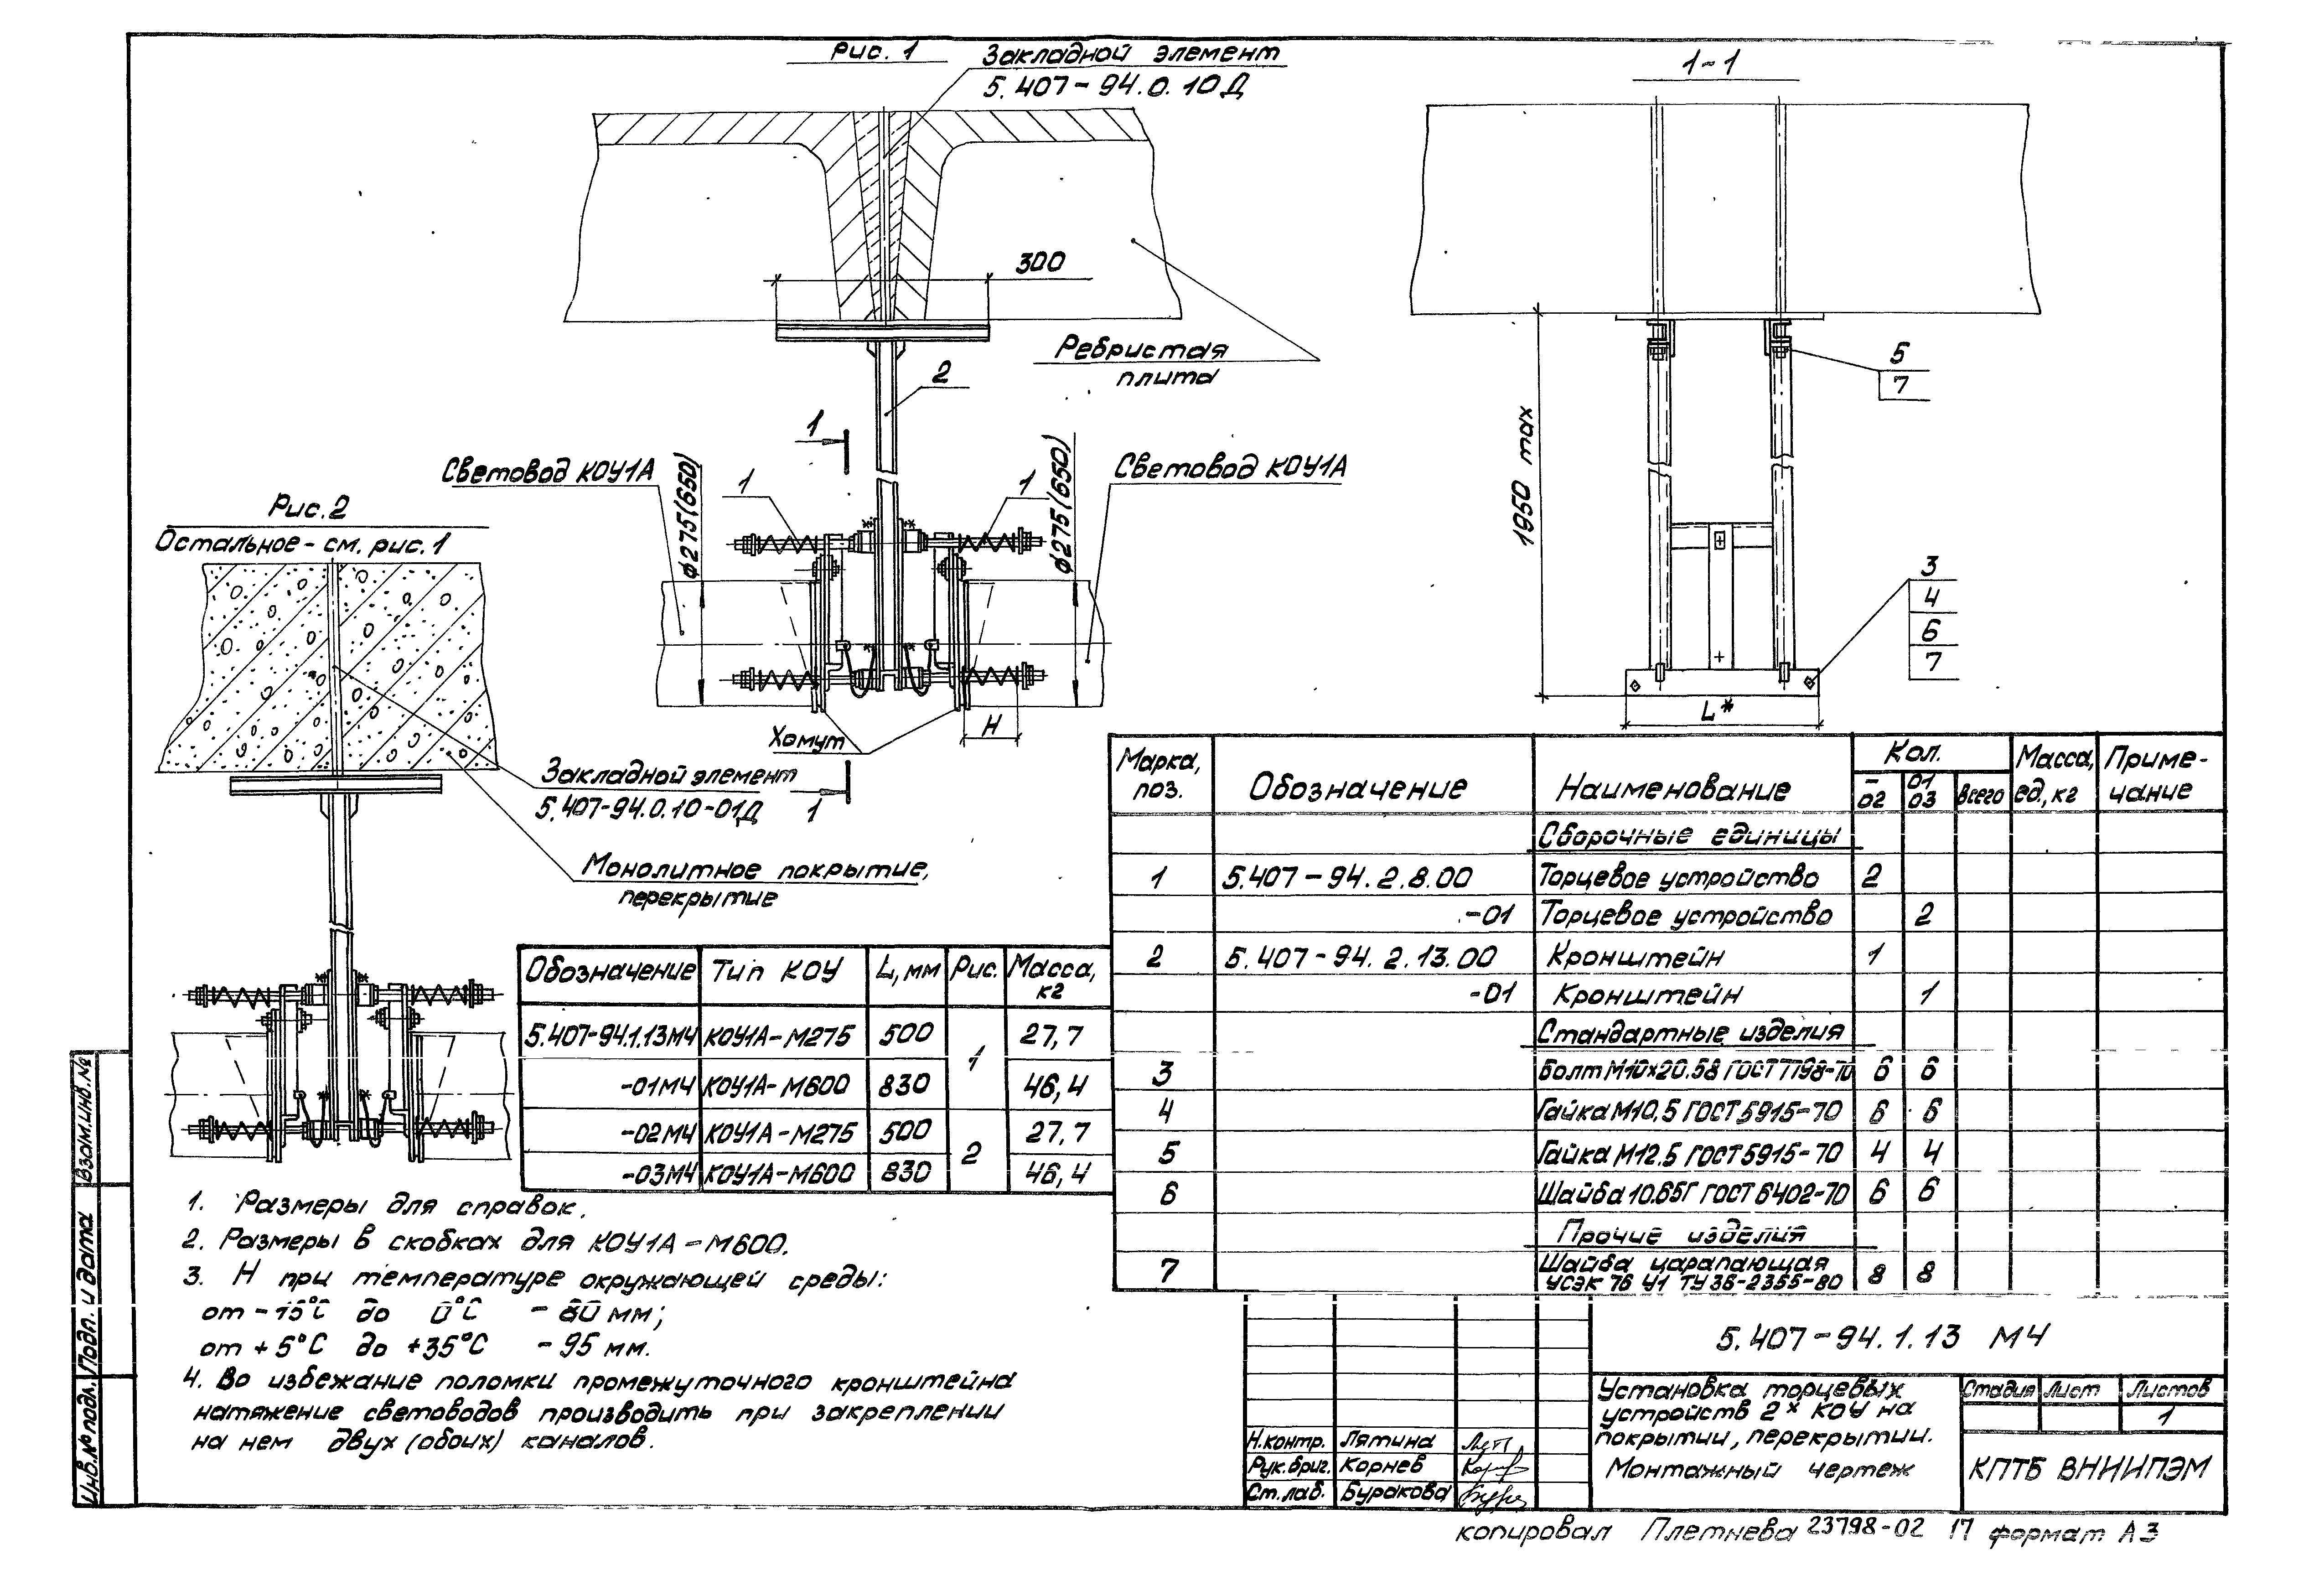 Рис. 1
Закладной элемент
5.407-94.0.10Д
1-1
300
Ребристая
плита
2
5
7
1
1950 max
Световод КОУ1А
ϕ275(650)
1
1
ϕ275(650)
Световод КОУ1А
Рис. 2
Остальное - см. рис. 1
3
4
6
7
L*
Хомут
H
Закладной элемент
5.407-94.0.10-01Д
1
Монолитное покрытие,
перекрытие
Марка, поз. Обозначение Наименование Кол. Масса, ед., кг Примечание
- 02 01 03 всего
Сборочные единицы
1 5.407-94.2.8.00 Торцевое устройство 2
-01 Торцевое устройство 2
2 5.407-94.2.13.00 Кронштейн 1
-01 Кронштейн 1
Стандартные изделия
3 Болт М10×20.58 ГОСТ 7798-70 6 6
4 Гайка М10.5 ГОСТ 5915-70 6 6
5 Гайка М12.5 ГОСТ 5915-70 4 4
6 Шайба 10.65Г ГОСТ 6402-70 6 6
Прочие изделия
7 Шайба царапающая
УСЭК 76 У1 ТУ 36-2355-80 8 8
Обозначение Тип КОУ L, мм Рис. Масса, кг
5.407-94.1.13МЧ КОУ1А-М275 500 1 27,7
-01МЧ КОУ1А-М600 830 46,4
-02МЧ КОУ1А-М275 500 2 27,7
-03МЧ КОУ1А-М600 830 46,4
1. Размеры для справок.
2. Размеры в скобках для КОУ1А-М600.
3. Н при температуре окружающей среды:
от -15°С до 0°С - 80 мм;
от +5°С до +35°С - 95 мм.
4. Во избежание поломки промежуточного кронштейна
натяжение световодов производить при закреплении
на нем двух (обоих) каналов.
5.407-94.1.13 МЧ
Установка торцевых
устройств 2х КОУ на
покрытии, перекрытии.
Монтажный чертеж
Стадия Лист Листов
1
КПТБ ВНИИПЭМ
Н.контр. Лятина
Рук.бриг. Корнев
Ст.лаб. Буракова
Взам.инв.№
Подп. и дата
Инв.№ подл.
копировал Плетнева 23798-02 17 формат А3